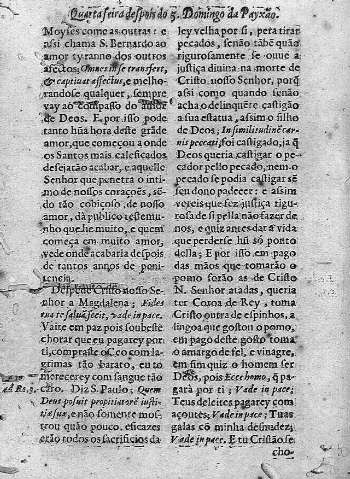 Quarta feira despois do 5. Domingo da Payxaõ.
Moyses come as outras: e
assi chama S. Bernardo ao
amor tyranno dos outros
affectos; Omnes in se transfert,
& captiuat affectus, e melho-
randose qualquer, sempre
vay ao compasso do amor
de Deos. E por isso pode
tanto hũa hora deste grãde
amor, que começou a onde
os Santos mais calefficados
desejarão acabar, e aquelle
Senhor que penetra o inti-
mo de nossos corações, sẽ-
do tão cobiçoso, de nosso
amor, dà publico testemu-
nho que he muito, e quem
começa em muito amor,
vede onde acabaria despois
de tantos annos de peni-
tencia.
Despede Cristo nosso Se-
nhor a Magdalena; Fides
tua te saluã fecit, vade in pace.
Vaite em paz pois soubeste
chorar que eu pagarey por
ti, compraste o Ceo com la-
grimas tão barato, eu to
merecerey com sangue tão
caro. Diz S. Paulo; Quem
Deus posuit propitiatorẽ iusti-
tiæ suæ, e não somente mos-
trou quão pouco efficazes
erão todos os sacrificios da
ley velha por si, pera tirar
pecados, senão tãbẽ quão
rigurosamente se ouue a
justiça diuina na morte de
Cristo nosso Senhor, porq̃
assi como quando senão
acha o delinquẽte castigão
a sua estatua, assim o filho
de Deos; In similitudinẽ car-
nis peccati, foi castigado, ja q̃
Deos queria castigar o pe-
cador pello pecado, nem o
pecado se podia castigar se
sen do no padecer: e assim
vereis que fez justiça rigu-
rosa de si pella não fazer de
nos, e quiz antes dar a vida
que perderse hũ só ponto
della; E por isso em pago
das mãos que tomarão o
pomo serão as de Cristo
N. Senhor atadas, queria
ter Coroa de Rey; toma
Cristo outra de espinhos, a
lingoa que gostou o pomo,
em pago deste gosto toma
o amargo de fel, e vinagre,
em fim quiz o homem ser
Deos, pois Ecce homo, q̃ pa-
garà por ti; Vade in pace;
Teus deleites pagarey com
açoutes; Vade in pace; Tuas
galas cõ minha desnudez;
Vade in pace. E tu Cristão se
cho-